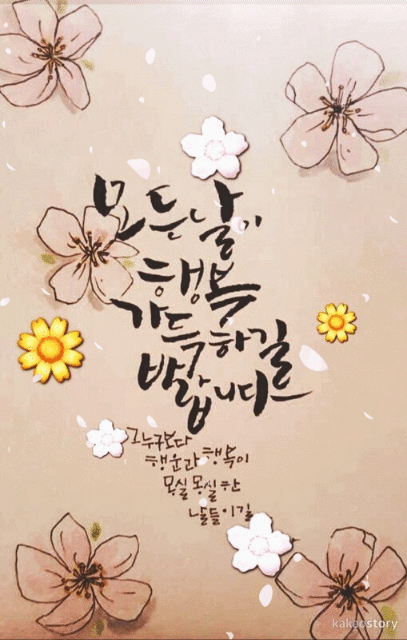 모든 날이
행복
가득하길
바랍니다
그누구보다
행운과 행복이
몽실몽실한
날들이길
kakaostory